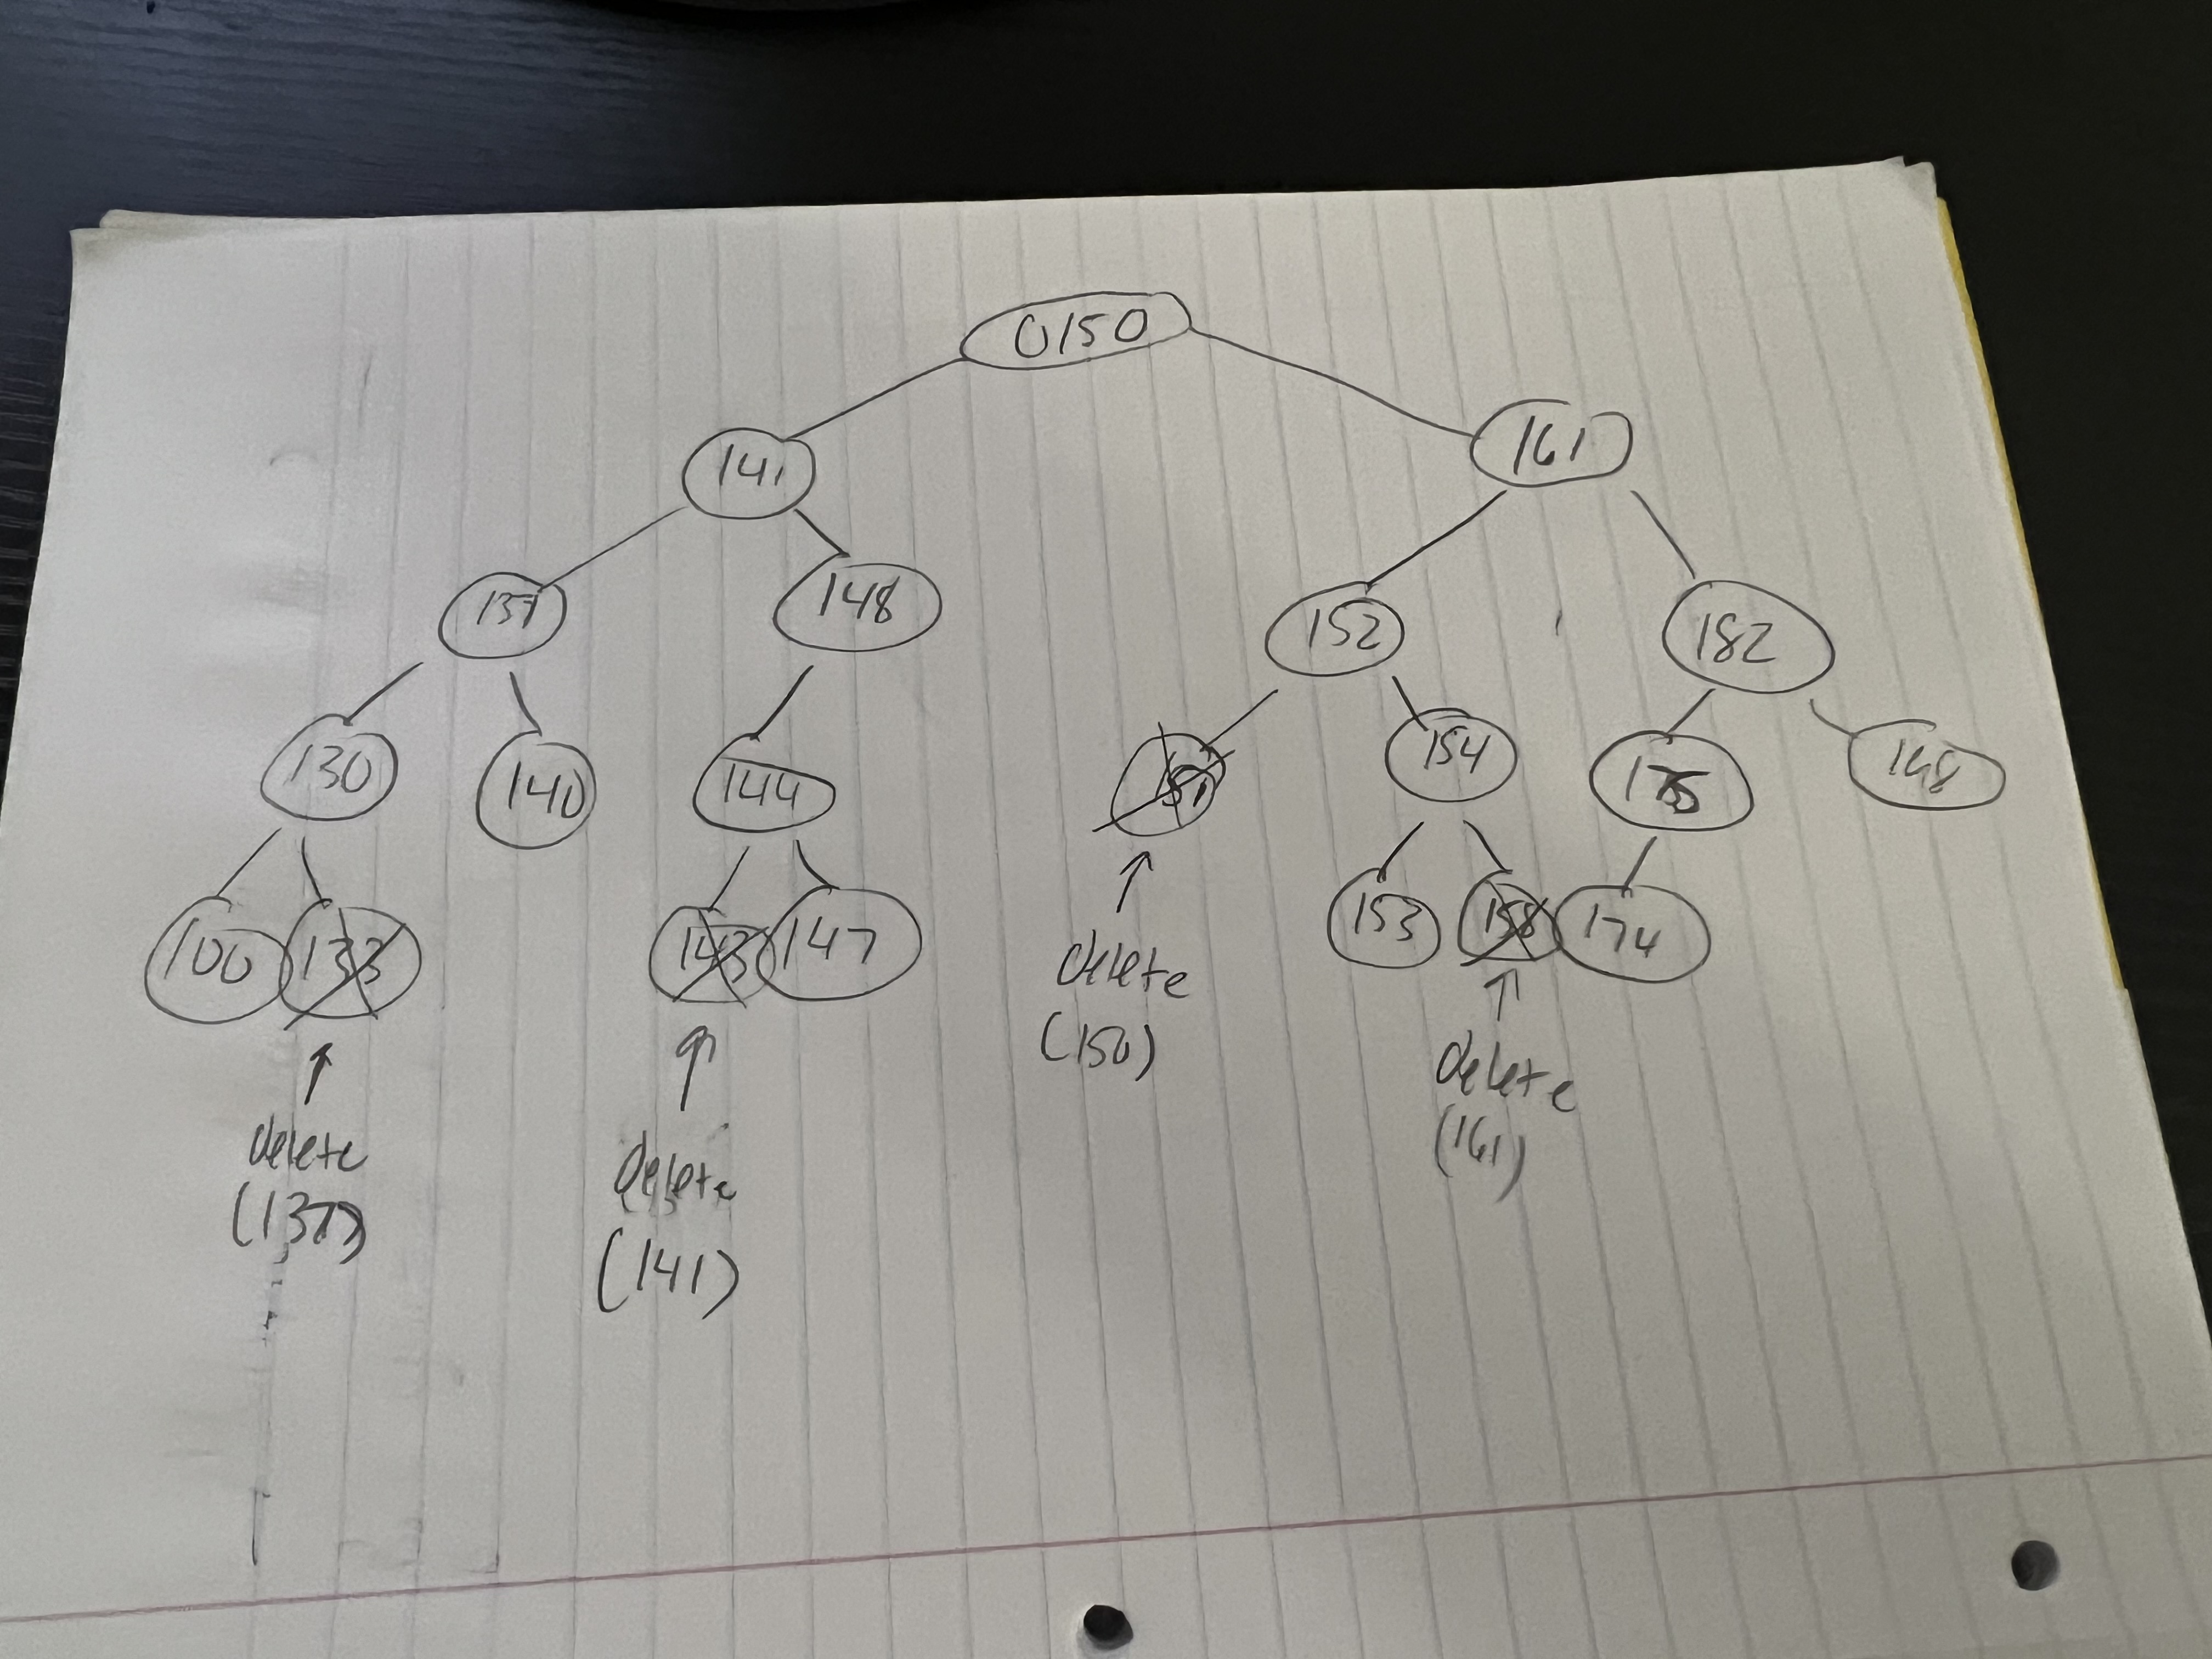 150
141
161
137
148
152
182
130
140
144
154
175
148
106
133
143
147
153
158
174
delete
(137)
delete
(141)
delete
(150)
delete
(161)